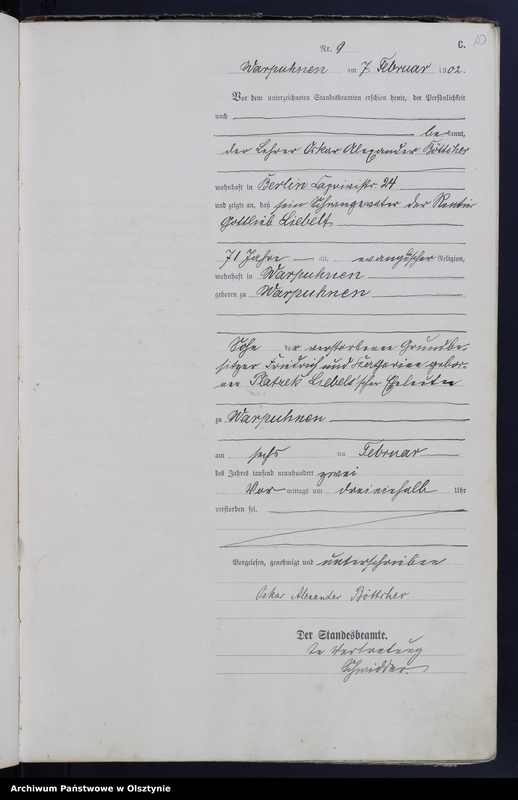 Nr. 9
C.
10
Warpuhnen am 7. Februar 1902.
Vor dem unterzeichneten Standesbeamten erschien heute, der Persönlichkeit
nach
bekannt,
der Lehrer Oskar Alexander Böttcher
wohnhaft in Berlin 24
und zeigte an, daß sein Schwiegervater der Rentier
Gottlieb Liebelt
71 Jahre alt, evangelischer Religion,
wohnhaft in Warpuhnen
geboren zu Warpuhnen
Sohn der verstorbenen Grundbe-
sitzer Friedrich und Katharine gebor-
nen Platzek Liebelt'schen Eheleute
zu Warpuhnen
am sechs ten Februar
des Jahres tausend neunhundert zwei
Vor mittags um dreieinhalb Uhr
verstorben sei.
Vorgelesen, genehmigt und unterschrieben
Oskar Alexander Böttcher
Der Standesbeamte.
In Vertretung
Archiwum Państwowe w Olsztynie